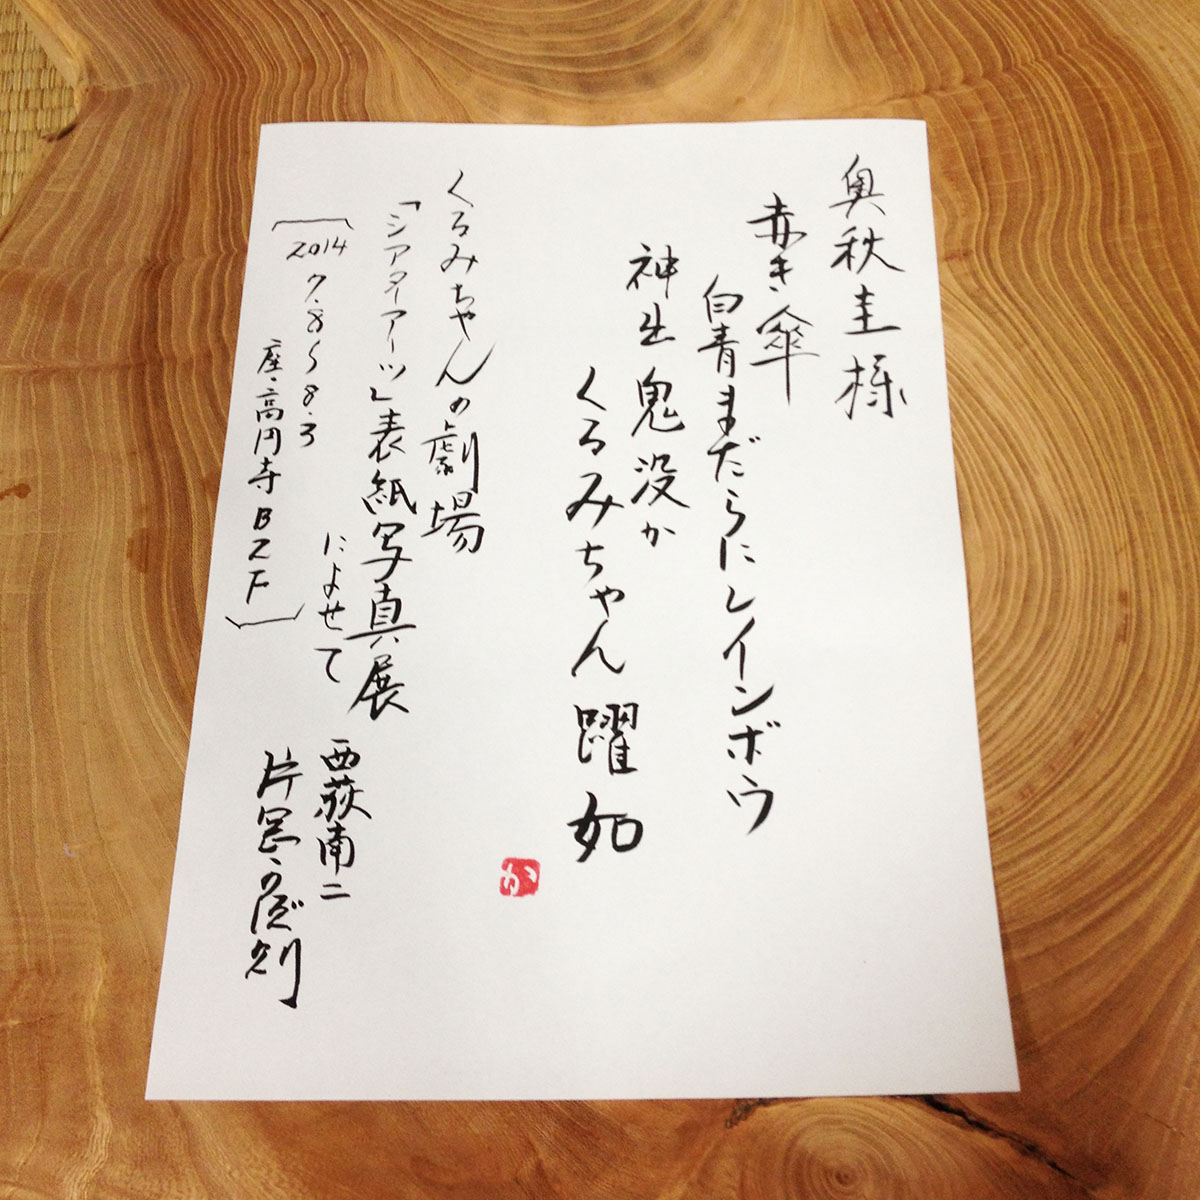 奥秋圭様
赤き傘
白青まだらにレインボウ
神出鬼没か
くるみちゃん躍如
か
くるみちゃんの劇場
「シアターアーツ」表紙写真展
によせて
2014
7.8〜8.3
座・高円寺B2F
西荻南二
片岡